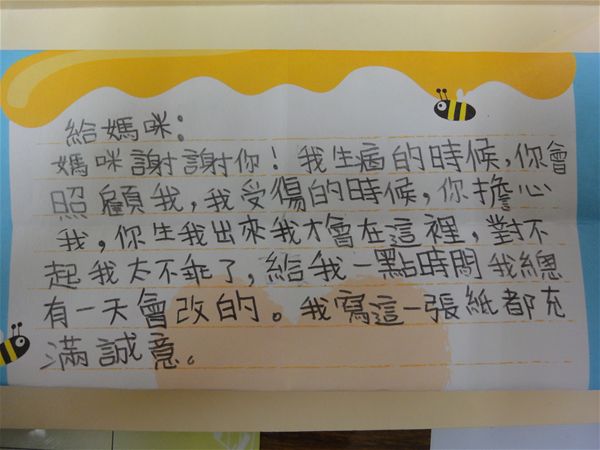 給媽咪：
媽咪謝謝你！我生病的時候，你會
照顧我，我受傷的時候，你擔心
我，你生我出來我才會在這裡，對不
起我太不乖了，給我一點時間我總
有一天會改的。我寫這一張紙都充
滿誠意。